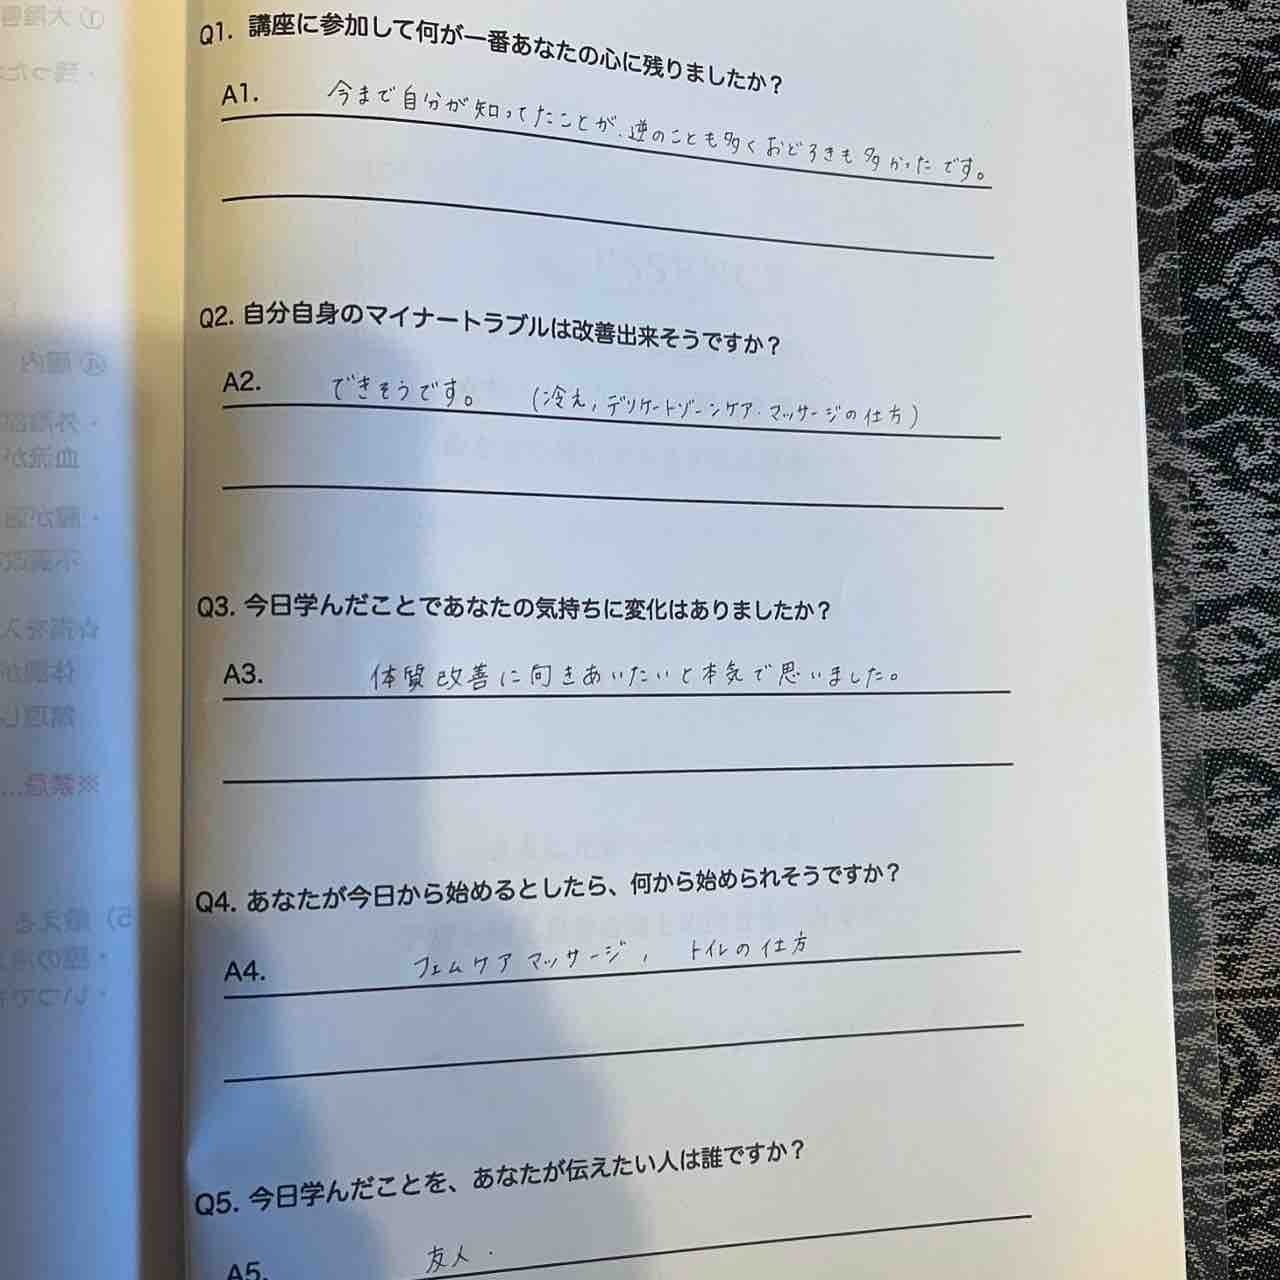 Q1. 講座に参加して何が一番あなたの心に残りましたか？
A1. 今まで自分が知ってたことが、逆のことも多くおどろきも多かったです。
Q2. 自分自身のマイナートラブルは改善出来そうですか？
A2. できそうです。 （冷え, デリケートゾーンケア・マッサージの仕方）
Q3. 今日学んだことであなたの気持ちに変化はありましたか？
A3. 体質改善に向きあいたいと本気で思いました。
Q4. あなたが今日から始めるとしたら、何から始められそうですか？
A4. フェムケアマッサージ, トイレの仕方
Q5. 今日学んだことを、あなたが伝えたい人は誰ですか？
A5. 友人.